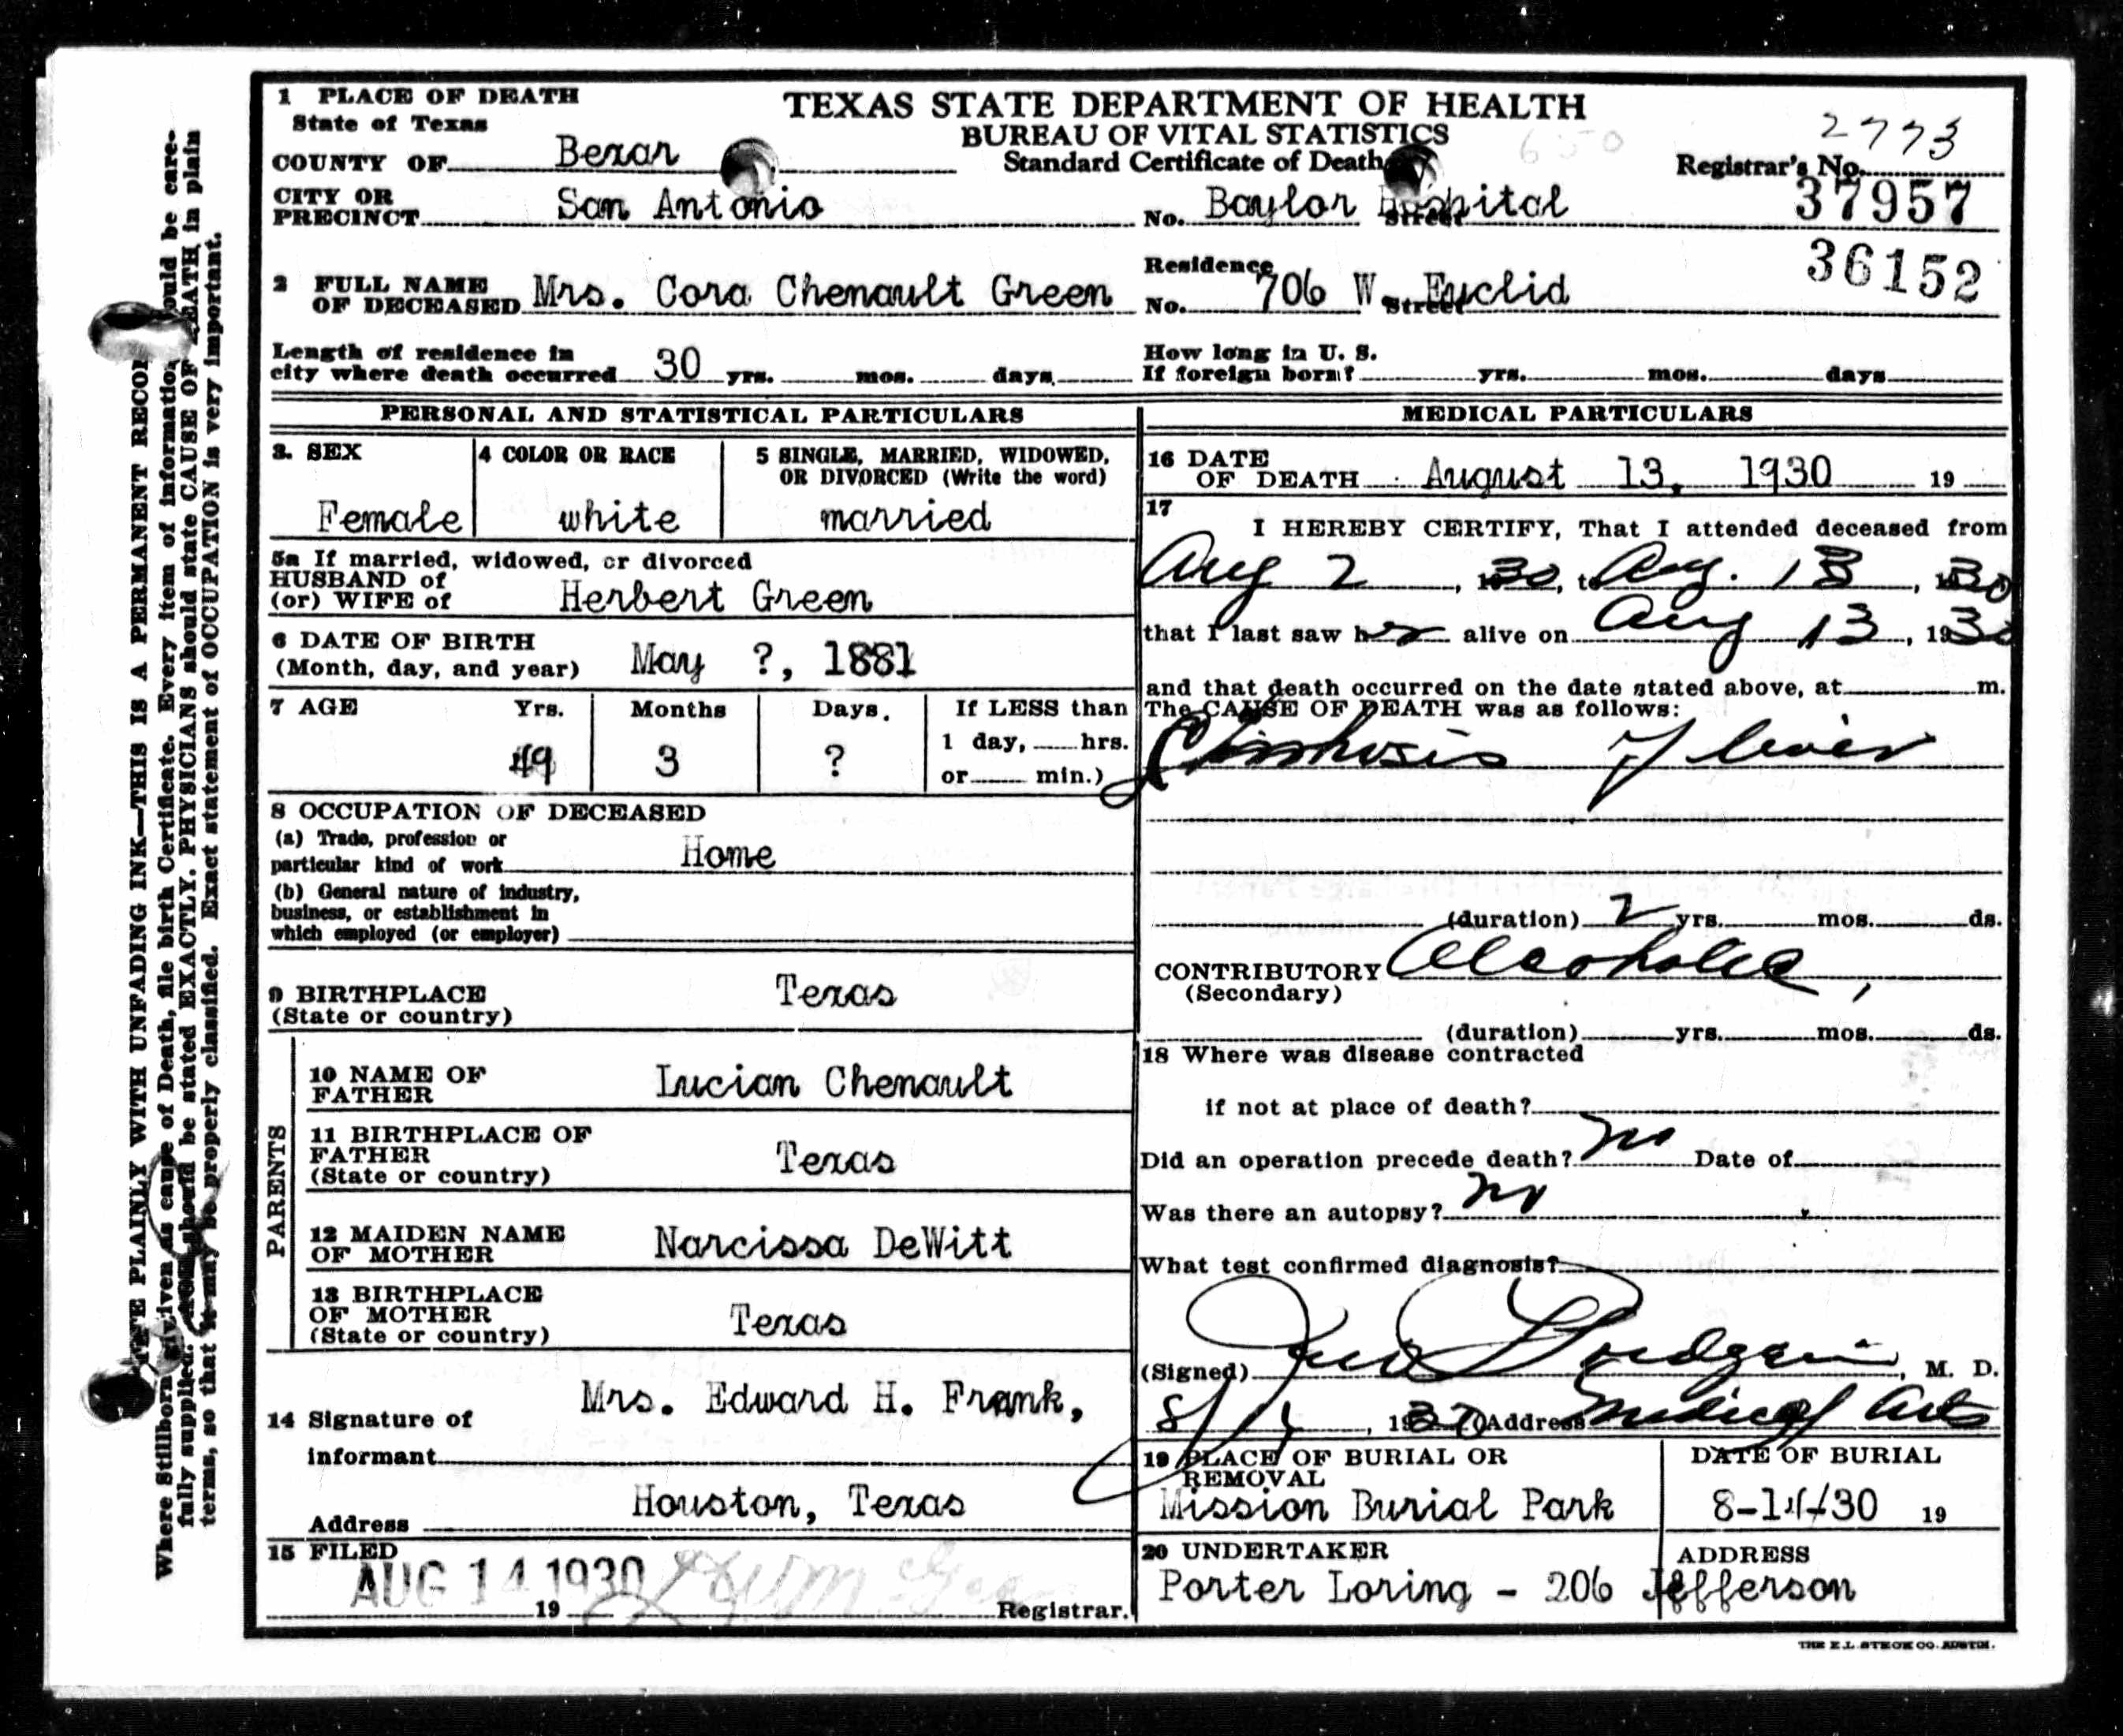 1 PLACE OF DEATH
State of Texas
COUNTY OF Bexar
CITY OR PRECINCT San Antonio
TEXAS STATE DEPARTMENT OF HEALTH
BUREAU OF VITAL STATISTICS
Standard Certificate of Death
Registrar's No. 2773
37957
No. Baylor Hospital Street
36152
2 FULL NAME OF DECEASED Mrs. Cora Chenault Green
Residence No. 706 W. Euclid Street
Length of residence in city where death occurred 30 yrs. mos. days
How long in U. S. If foreign born? yrs. mos. days
PERSONAL AND STATISTICAL PARTICULARS
3. SEX
Female
4 COLOR OR RACE
white
5 SINGLE, MARRIED, WIDOWED, OR DIVORCED (Write the word)
married
5a If married, widowed, or divorced
HUSBAND of
(or) WIFE of Herbert Green
6 DATE OF BIRTH
(Month, day, and year) May ?, 1881
7 AGE Yrs. Months Days. If LESS than
49 3 ? 1 day, hrs.
or min.)
8 OCCUPATION OF DECEASED
(a) Trade, profession or
particular kind of work Home
(b) General nature of industry,
business, or establishment in
which employed (or employer)
9 BIRTHPLACE
(State or country) Texas
PARENTS
10 NAME OF FATHER Lucian Chenault
11 BIRTHPLACE OF FATHER
(State or country) Texas
12 MAIDEN NAME OF MOTHER Narcissa DeWitt
13 BIRTHPLACE OF MOTHER
(State or country) Texas
14 Signature of informant Mrs. Edward H. Frank,
Address Houston, Texas
15 FILED
AUG 14 1930
19 Registrar.
MEDICAL PARTICULARS
16 DATE OF DEATH August 13, 1930 19
17
I HEREBY CERTIFY, That I attended deceased from
Aug 2, 1930, to Aug. 13, 1930
that I last saw her alive on Aug 13, 1930
and that death occurred on the date stated above, at m.
The CAUSE OF DEATH was as follows:
Cirrhosis of liver
(duration) 2 yrs. mos. ds.
CONTRIBUTORY Alcoholic,
(Secondary)
(duration) yrs. mos. ds.
18 Where was disease contracted
if not at place of death?
Did an operation precede death? no Date of
Was there an autopsy? no
What test confirmed diagnosis?
(Signed) M. D.
8/ , 1930 (Address Medical Arts
19 PLACE OF BURIAL OR REMOVAL
Mission Burial Park
DATE OF BURIAL
8-14-30 19
20 UNDERTAKER
ADDRESS
Porter Loring - 206 Jefferson
THE E.L. STECK CO. AUSTIN.
PLAINLY WITH UNFADING INK—THIS IS A PERMANENT
Where Stillborn given as cause of Death, file birth Certificate. Every item of information should be care-
fully supplied. should be stated EXACTLY. PHYSICIANS should state CAUSE OF DEATH in plain
terms, so that it may be properly classified. Exact statement of OCCUPATION is very important.